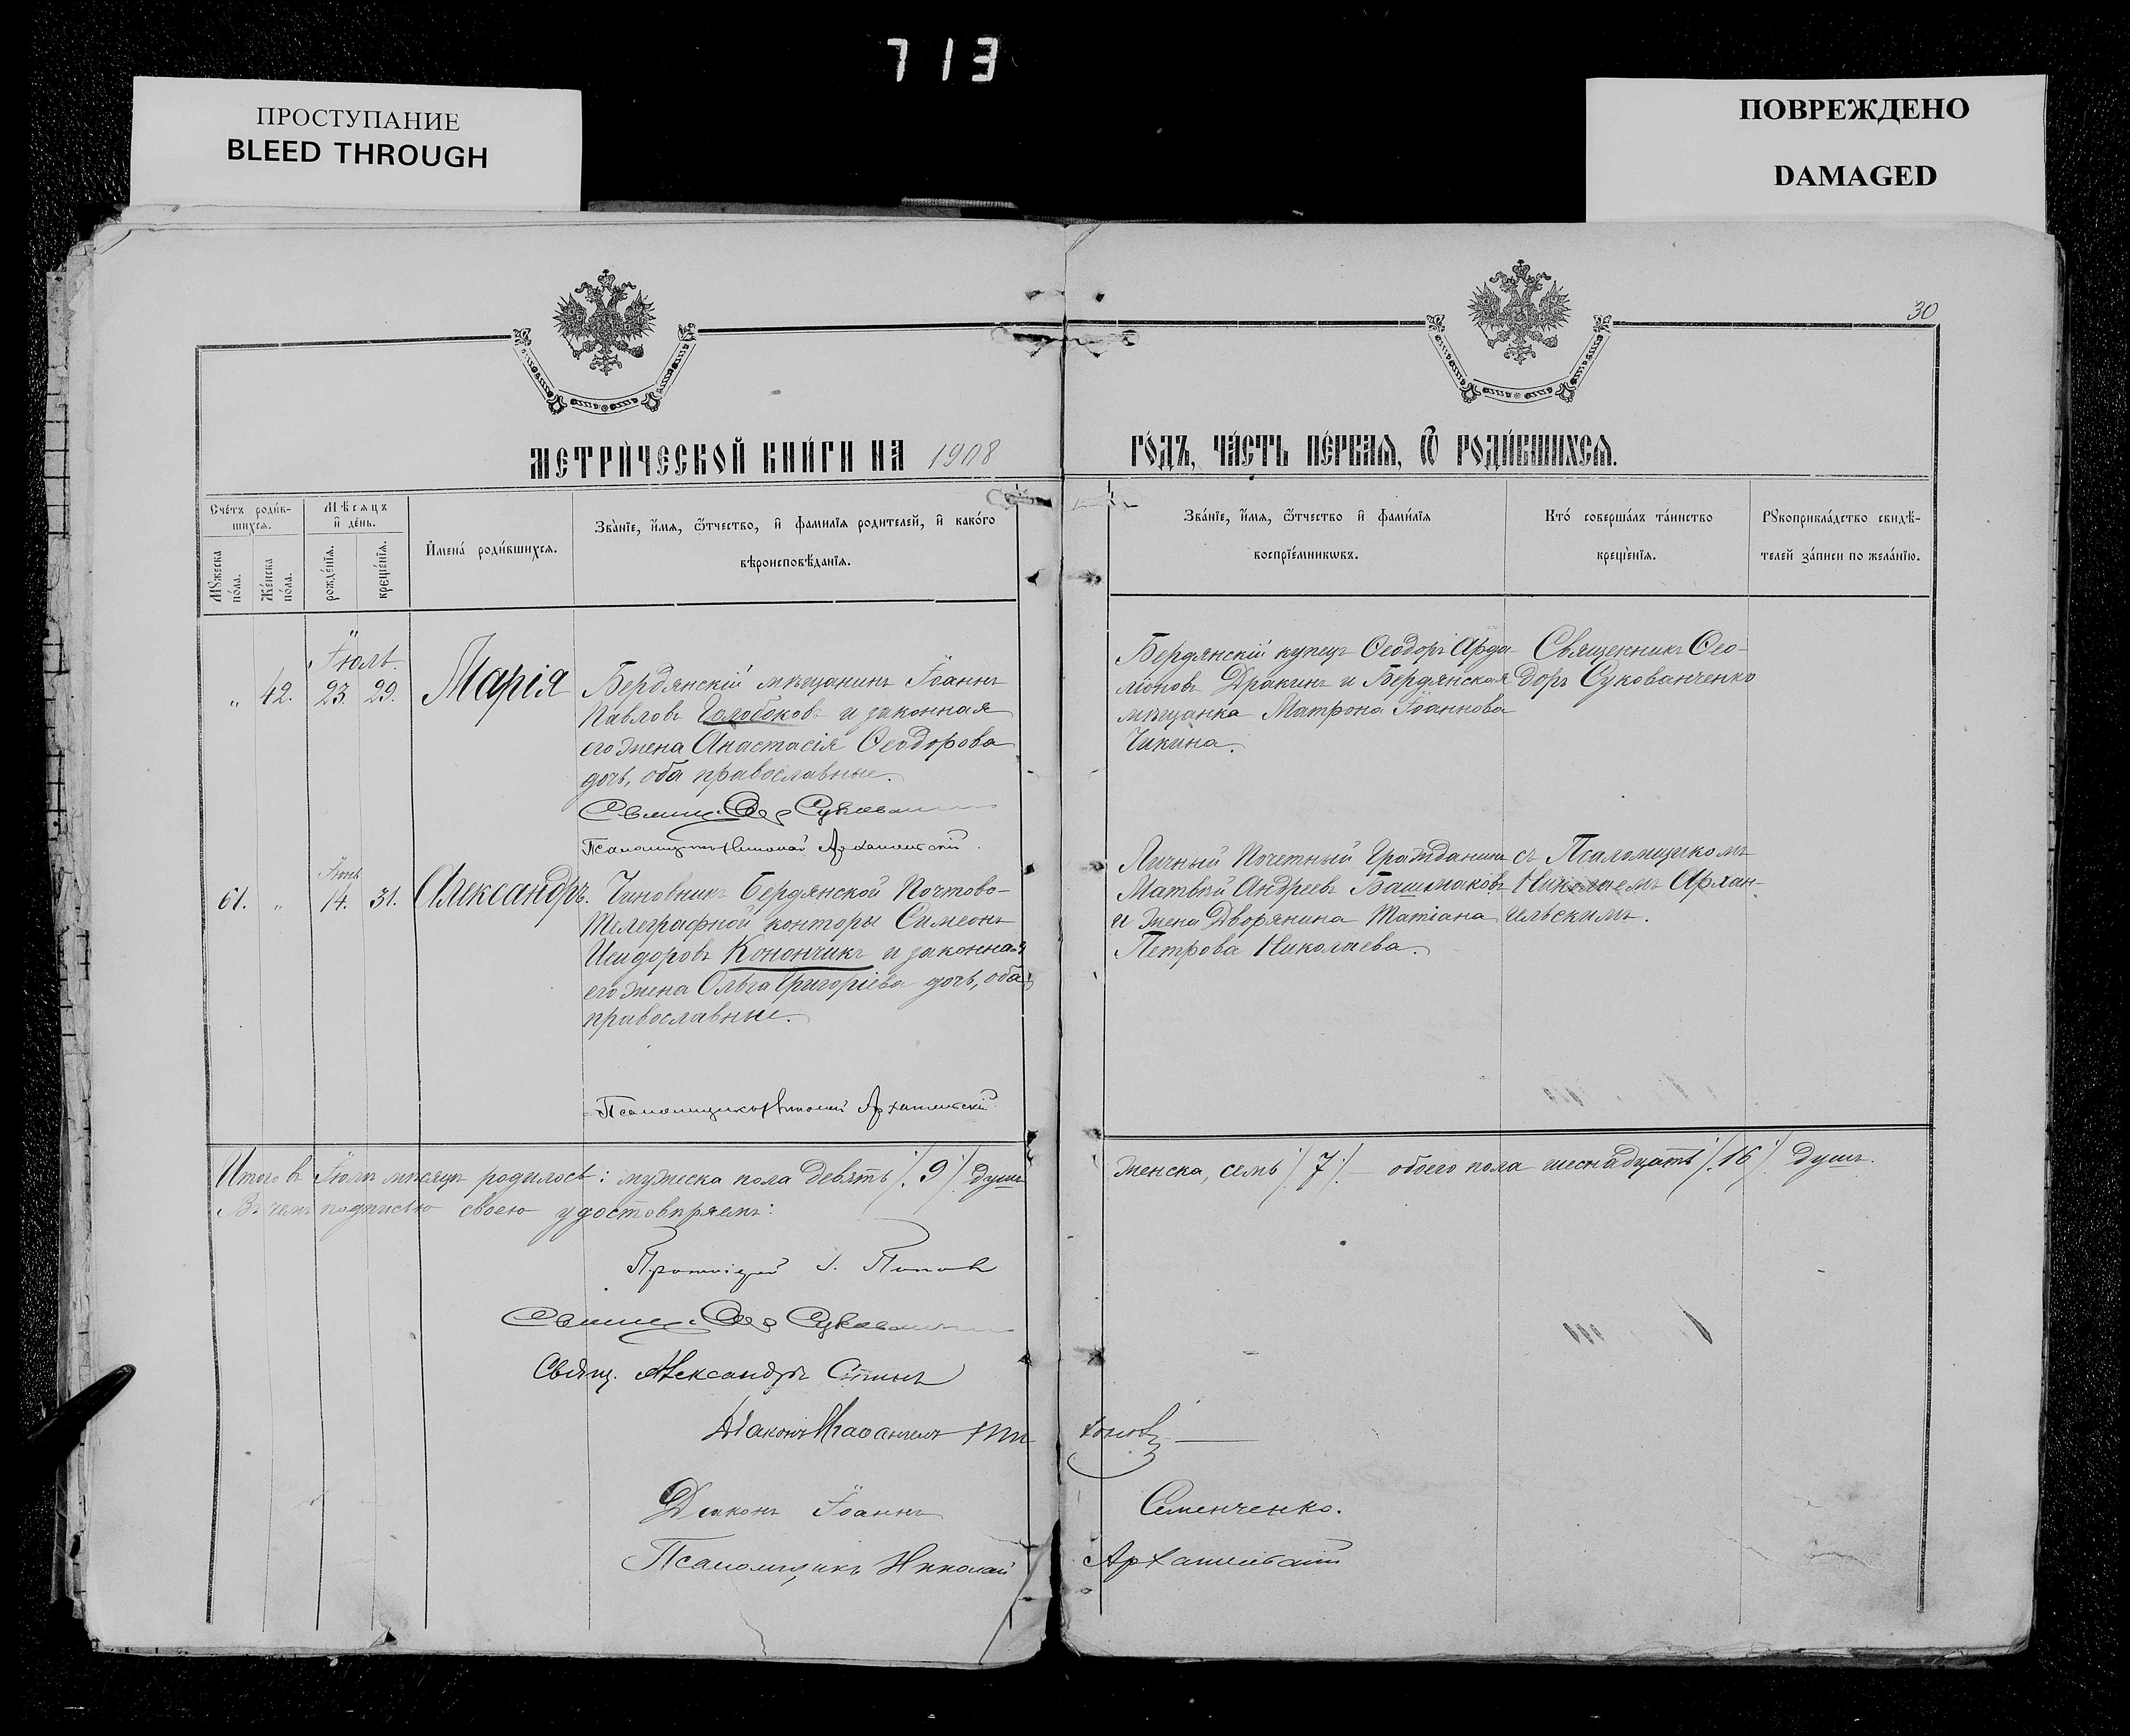 713
ПРОСТУПАНИЕ
BLEED THROUGH
ПОВРЕЖДЕНО
DAMAGED
30
МЕТРИ́ЧЕСКОЙ КНИ́ГИ НА 1908
ГО́ДЪ, ЧА́СТЬ ПЕ́РВАЯ, Ѿ РОДИ́ВШИХСЯ.
Сче́тъ роди́в-
шихся.
Мꙋ́жеска по́ла.
Же́нска по́ла.
Мѣ́сяцъ
и҆ де́нь.
рожде́нїя.
креще́нїя.
И҆мена́ роди́вшихся.
Зва́нїе, и҆́мя, ѻ҆́тчество, и҆ фами́лїя роди́телей, и҆ како́го
вѣроисповѣ́данїя.
Зва́нїе, и҆́мя, ѻ҆́тчество и҆ фами́лїя
воспрїе́мникѡвъ.
Кто́ соверша́лъ та́инство
креще́нїя.
Рꙋкоприкла́дство свидѣ́-
телей за́писи по жела́нїю.
Іюль.
„ 42. 23. 29. Марія
Бердянскій мѣщанинъ Іоаннъ
Павловъ Голобоковъ и законная
его жена Анастасія Ѳеодорова
дочь, оба православные.
Псаломщикъ Николай Архангельскій.
Бердянскій купецъ Ѳеодоръ Арда-
ліоновъ Дракинъ и Бердянская
мѣщанка Матрона Іоаннова
Чикина.
Священникъ Ѳео-
доръ Сукованченко
Іюнь
61. „ 14. 31. Александръ.
Чиновникъ Бердянской Почтово-
Телеграфной конторы Симеонъ
Исидоровъ Конончикъ и законная
его жена Ольга Григоріева дочь, оба
православные.
Псаломщикъ Николай Архангельскій
Личный Почетный Гражданинъ
Матвѣй Андреевъ Башмаковъ
и жена Дворянина Татіана
Петрова Николаева.
съ Псаломщикомъ
Николаемъ Архан-
гельскимъ.
Итого въ Іюлѣ мѣсяцѣ родилось: мужеска пола девять /.9./ душъ
женска, семь /.7./ — обоего пола шеснадцать /.16./ душъ.
Въ чемъ подписью своею удостовѣряемъ:
Протоіерей І. Поповъ
Свящ. Александръ
Діаконъ
Діаконъ Іоаннъ Семенченко.
Псаломщикъ Николай Архангельскій